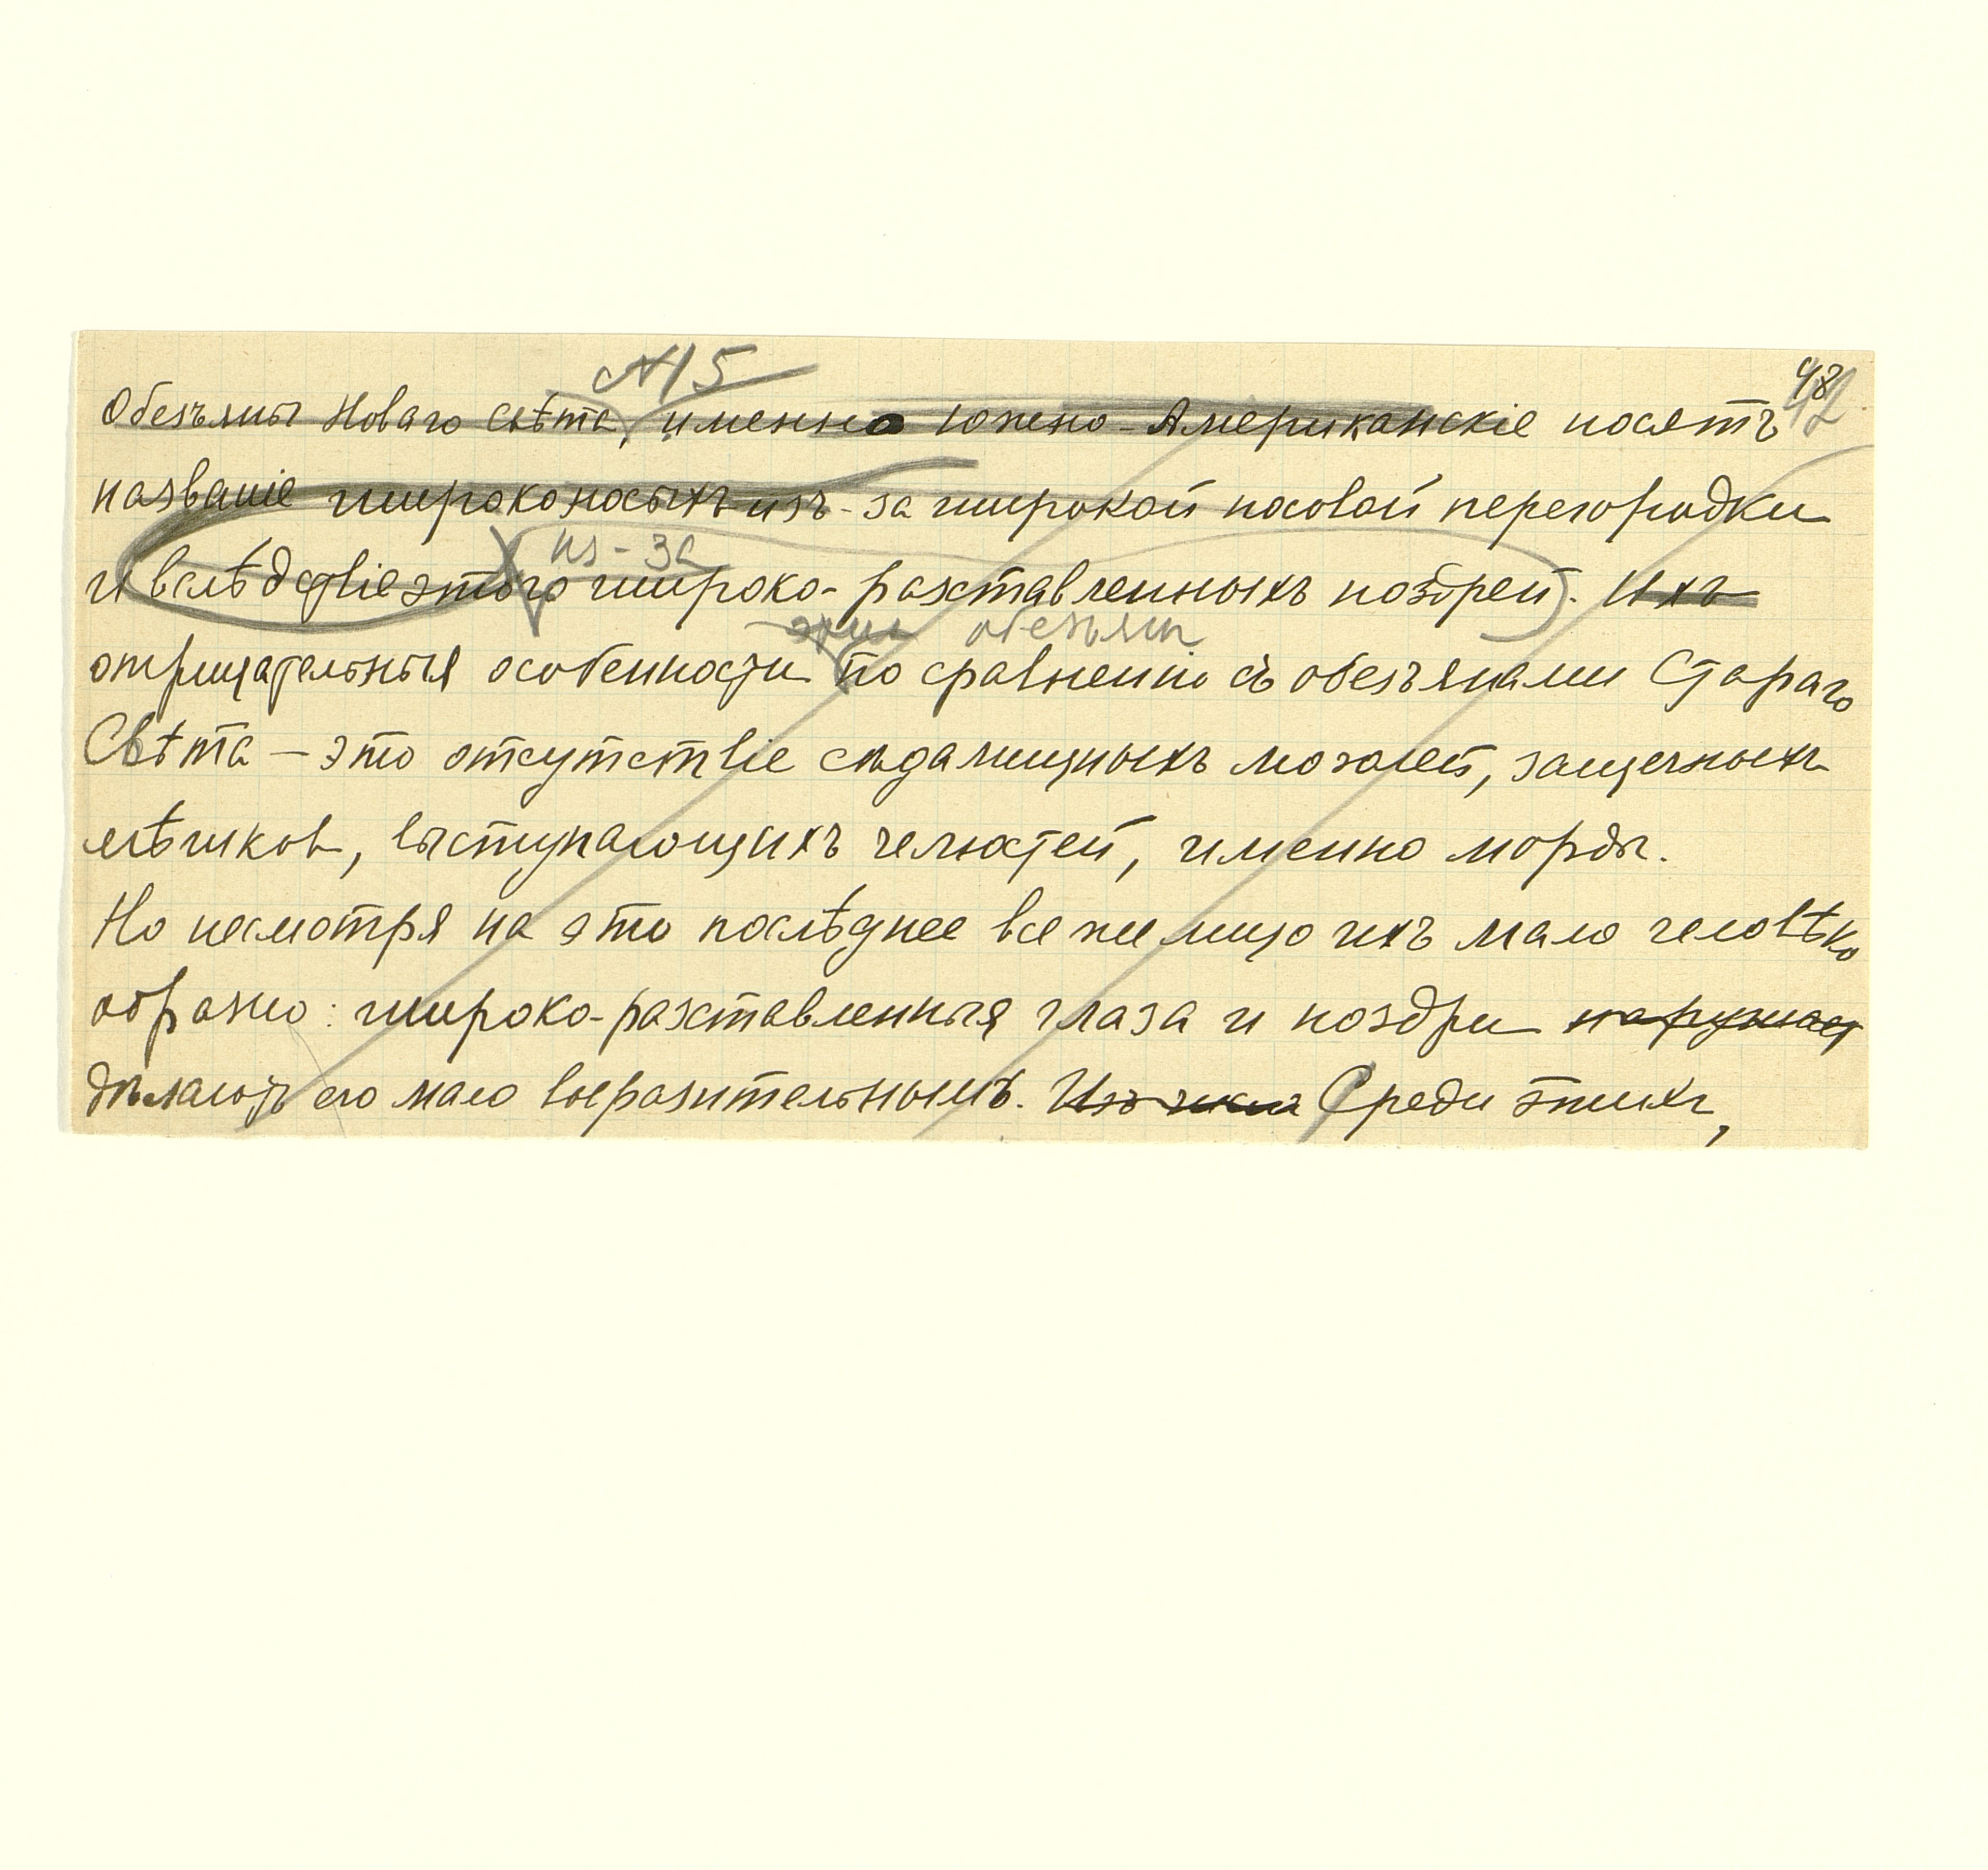 №15
48
42
Обезьяны Новаго Свѣта, именно Южно-Американскіе носятъ
названіе широконосыхъ изъ-за широкой носовой перегородки
из-за
и вслѣдствіе этого широко-разставленныхъ ноздрей. Ихъ
этих обезьян
отрицательныя особенности по сравненію съ обезьянами Стараго
Свѣта – это отсутствіе сѣдалищныхъ мозолей, защечныхъ
мѣшковъ, выступающихъ челюстей, именно морды.
Но несмотря на это послѣднее все же лицо ихъ мало человѣко
образно: широко-разставленныя глаза и ноздри
дѣлаютъ его мало выразительнымъ. Изъ них Среди этихъ,